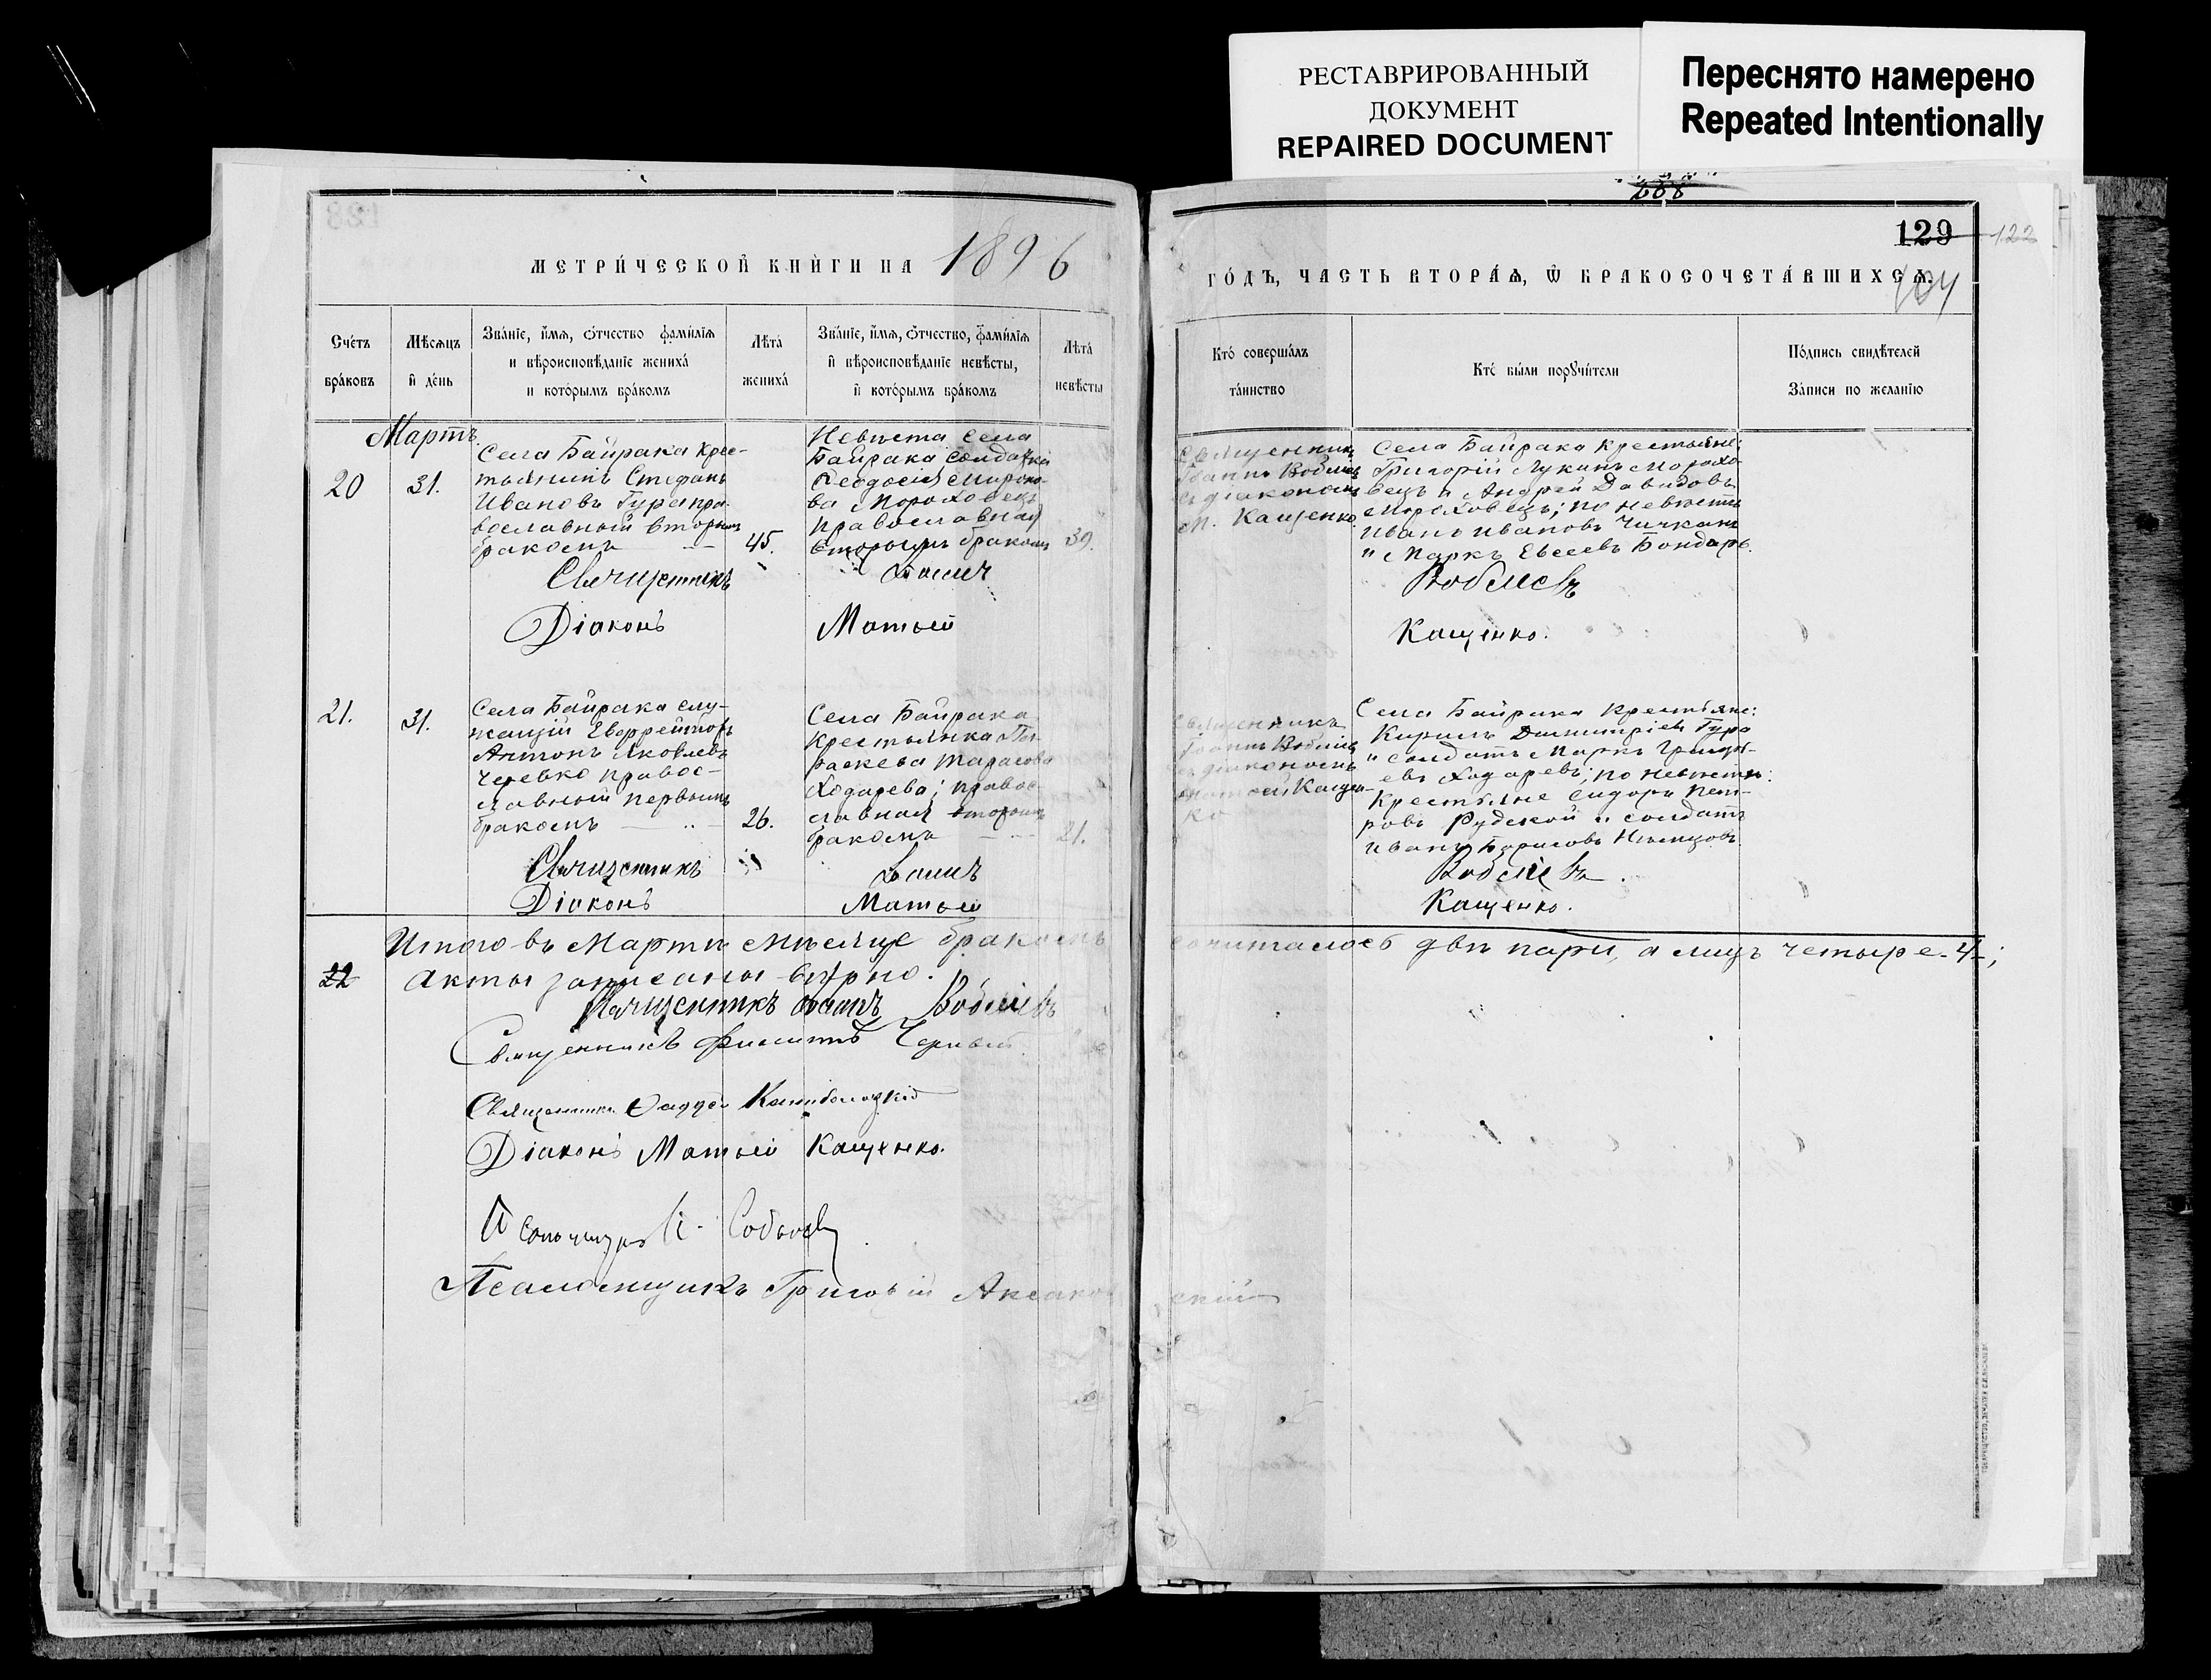 РЕСТАВРИРОВАННЫЙ
ДОКУМЕНТ
REPAIRED DOCUMENT
Переснято намерено
Repeated Intentionally
129
122
МЕТРИ́ЧЕСКОЙ КНИ́ГИ НА 1896
ГО́ДЪ, ЧАСТЬ ВТОРА́Ѧ, Ѿ БРАКОСОЧЕТА́ВШИХСѦ.
Сче́тъ
бра́ковъ
Мѣ́сѧцъ
и҆ де́нь
Зва́нїе, и҆́мѧ, ѻ҆́тчество фами́лїѧ
и вѣроисповѣ́данїе жениха́
и кото́рымъ бра́комъ
Лѣта́
жениха́
Зва́нїе, и҆́мѧ, ѻ҆́тчество, фами́лїѧ
и҆ вѣроисповѣ́данїе невѣ́сты,
и҆ кото́рымъ бра́комъ
Лѣта́
невѣ́сты
Кто́ соверша́лъ
та́инство
Кто́ бы́ли порꙋчи́тели
По́дпись свидѣ́телей
За́писи по жела́нїю
Мартъ.
20
31.
Села Байрака крес-
тьянинъ Стефанъ
Ивановъ Гура пра-
вославный вторымъ
бракомъ
45.
Невѣста села
Байрака солдатка
Ѳеодосія Мироно-
ва Мороховецъ
православная
вторымъ бракомъ
39.
Священникъ
Іоаннъ Воблевъ
съ діакономъ
М. Кащенко.
Села Байрака крестьяне:
Григорій Лукинъ Морохо-
вецъ и Андрей Давидовъ
Мороховецъ; по невѣстѣ
Иванъ Ивановъ Чичканъ
и Маркъ Евсеевъ Бондарь.
Священникъ Іоаннъ Воблевъ
Діаконъ Матѳей Кащенко.
21.
31.
Села Байрака слу-
жащій Ефрейторъ
Антонъ Яковлевъ
Черевко правос-
лавный первымъ
бракомъ
26.
Села Байрака
крестьянка Па-
раскева Тарасова
Ходарева; правос-
лавная вторымъ
бракомъ
21.
Священникъ
Іоаннъ Воблевъ
съ діакономъ
Матѳей Кащен-
ко
Села Байрака крестьяне:
Кирилъ Димитріевъ Гура
и солдатъ Маркъ Григорь-
евъ Ходаревъ; по невѣстѣ:
Крестьяне Сидоръ Пет-
ровъ Рудской и солдатъ
Иванъ Борисовъ Нѣмцовъ.
Священникъ Іоаннъ Воблевъ.
Діаконъ Матѳей Кащенко.
Итого въ Мартѣ мѣсяце бракомъ сочиталось двѣ пары, а лицъ четыре. 4;
22 Акты записаны вѣрно.
Священникъ Іоаннъ Воблевъ
Священникъ Филиппъ
Священникъ Ѳаддей
Діаконъ Матѳей Кащенко.
Псаломщикъ
Псаломщикъ Григорій Аксаковскій